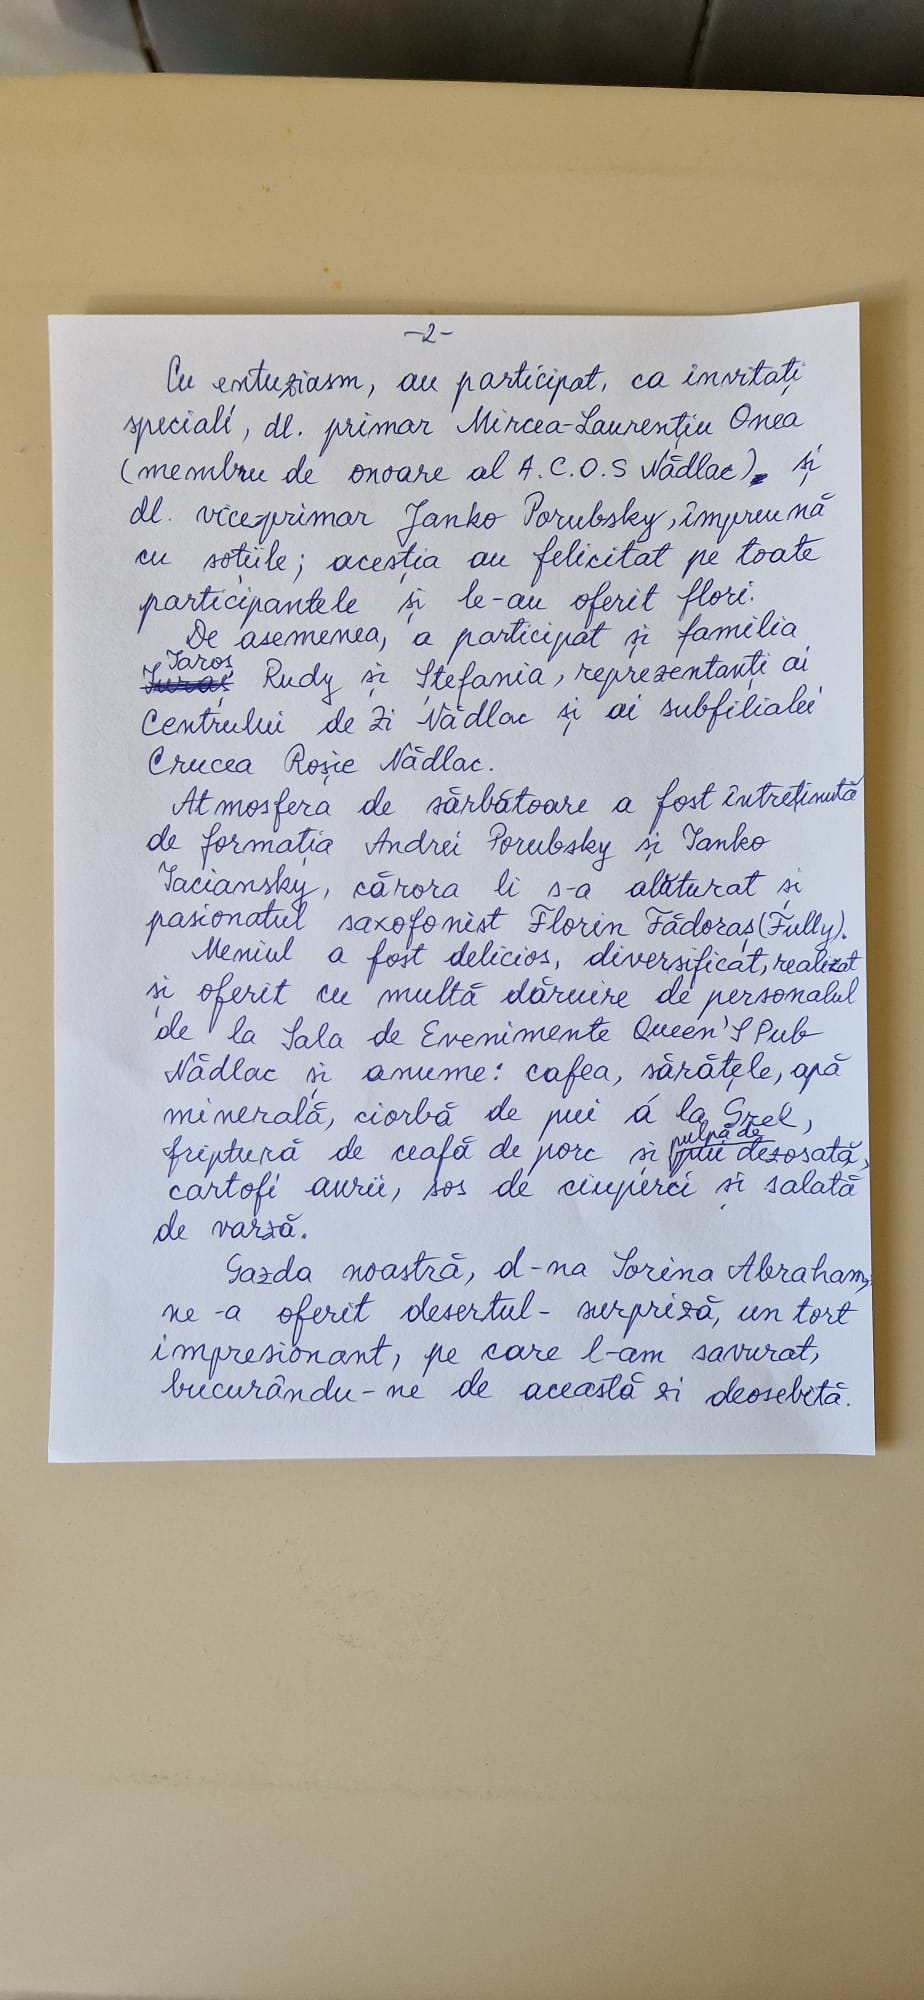 -2-
Cu entuziasm, au participat, ca invitați
speciali, dl. primar Mircea-Laurențiu Onea
(membru de onoare al A.C.O.S Nădlac), și
dl. viceprimar Janko Porubsky, împreună
cu soțiile; aceștia au felicitat pe toate
participantele și le-au oferit flori.
De asemenea, a participat și familia
Jaroș
Rudy și Ștefania, reprezentanți ai
Centrului de Zi Nădlac și ai subfilialei
Crucea Roșie Nădlac.
Atmosfera de sărbătoare a fost întreținută
de formația Andrei Porubsky și Janko
Jaciansky, cărora li s-a alăturat și
pasionatul saxofonist Florin Fădoraș (Fully).
Meniul a fost delicios, diversificat, realizat
și oferit cu multă dăruire de personalul
de la Sala de Evenimente Queen'S Pub
Nădlac și anume: cafea, sărățele, apă
minerală, ciorbă de pui á la Grec,
pulpă de
friptură de ceafă de porc și pui dezosată,
cartofi aurii, sos de ciuperci și salată
de varză.
Gazda noastră, d-na Sorina Abraham,
ne-a oferit desertul-surpriză, un tort
impresionant, pe care l-am savurat,
bucurându-ne de această zi deosebită.